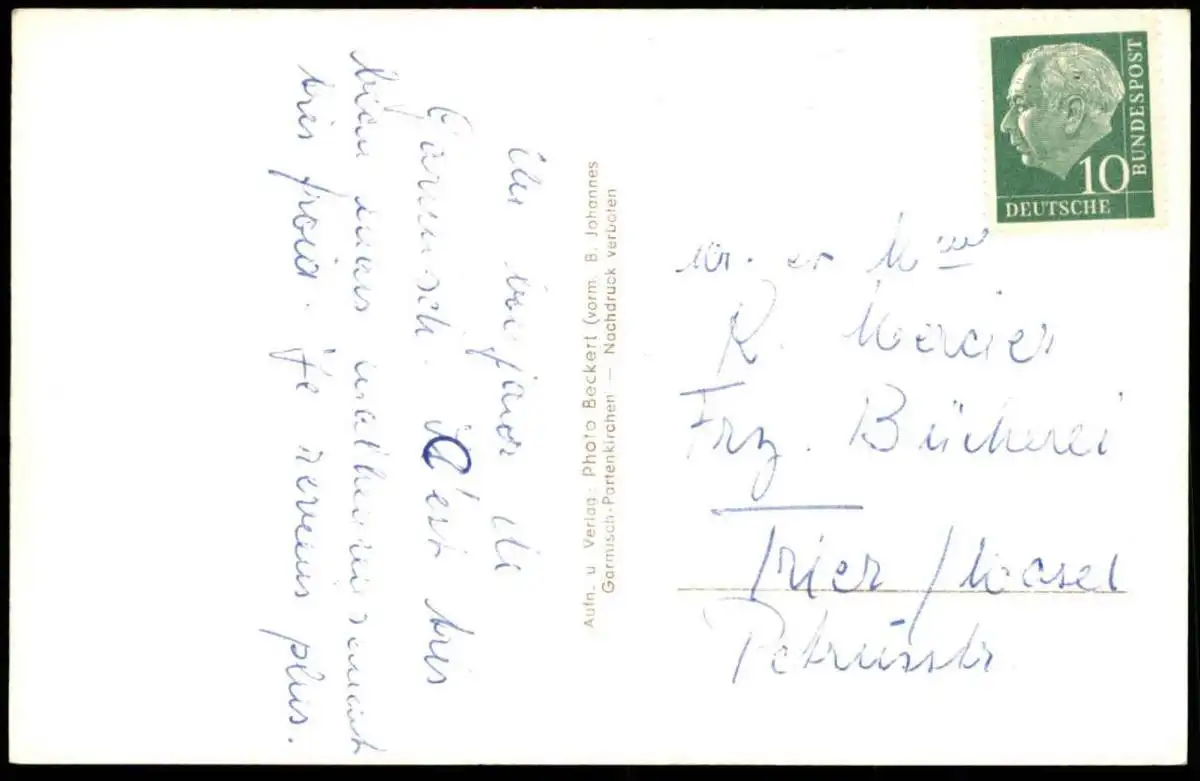 Un bonjour de
Garmisch. C'est très
bien mais malheureusement
très froid. Je reviens plus.
Aufn. u. Verlag: Photo Beckert (vorm. B. Johannes
Garmisch-Partenkirchen — Nachdruck verboten
DEUTSCHE
BUNDESPOST
10
Mr. et Mme
R. Mercier
Frz. Bücherei
Trier / Mosel
Petrusstr.